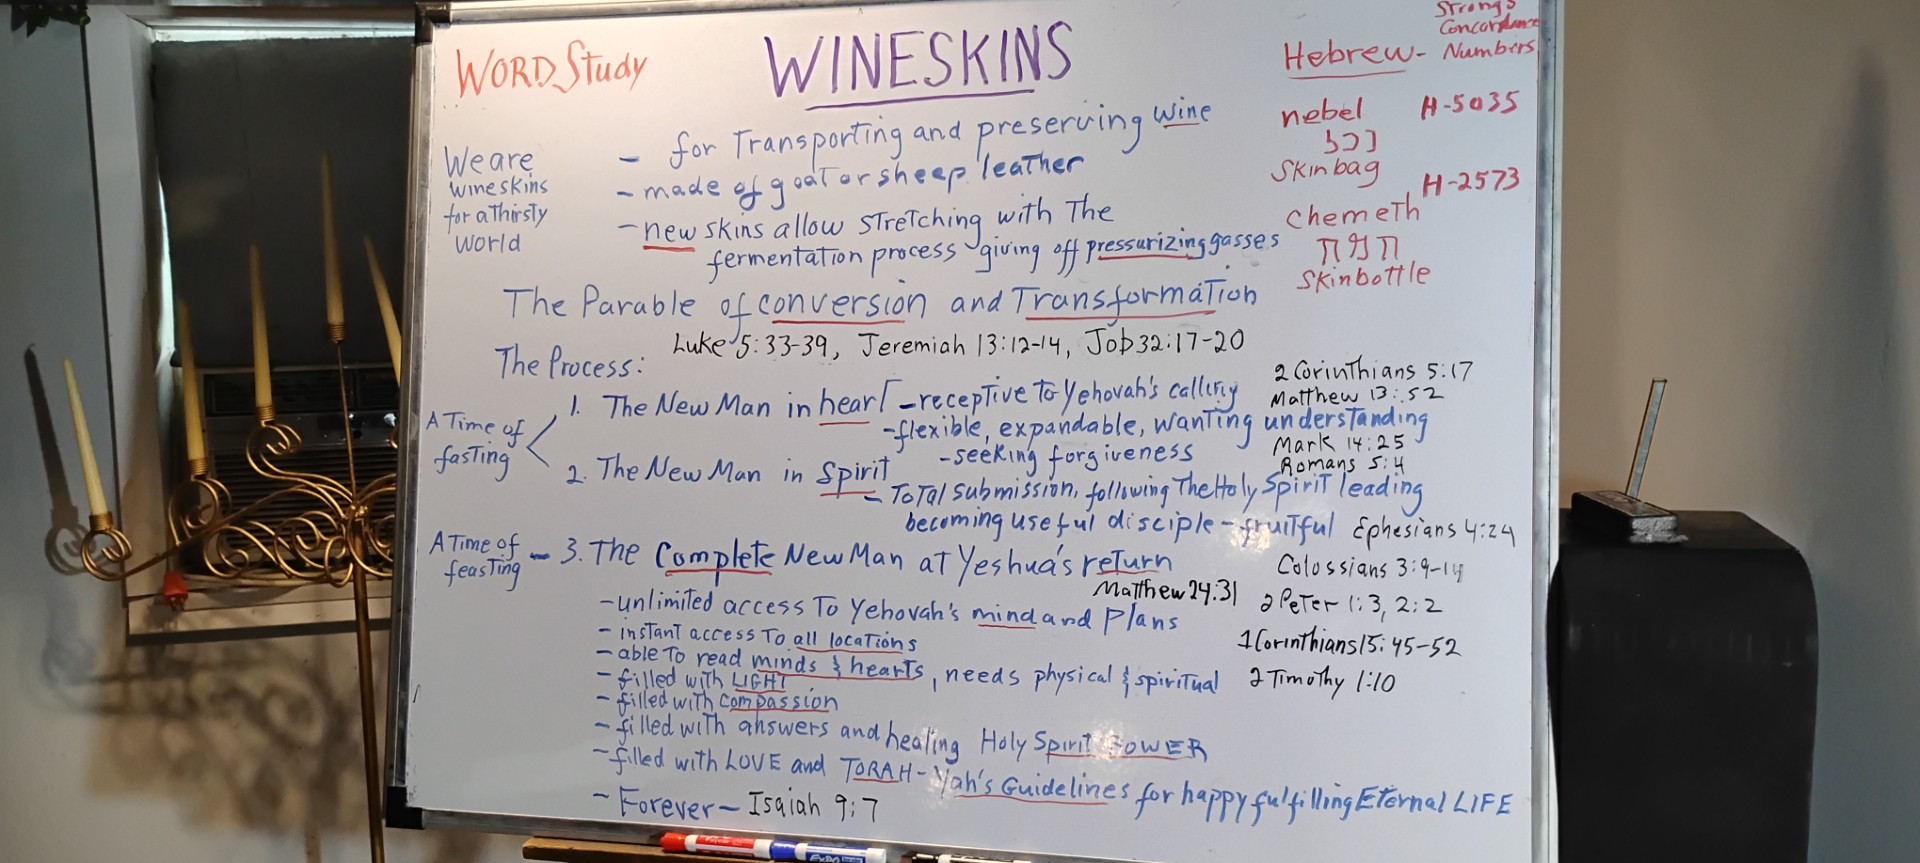 WORD Study
WINESKINS
Strongs
Concordance
Hebrew - Numbers
nebel H-5035
נבל
Skinbag
chemeth H-2573
חמת
Skinbottle
We are
wineskins
for a thirsty
World
- for Transporting and preserving wine
- made of goat or sheep leather
- new skins allow stretching with The
fermentation process giving off pressurizing gasses
The Parable of conversion and Transformation
Luke 5:33-39, Jeremiah 13:12-14, Job 32:17-20
The Process:
A Time of
fasting
1. The New Man in heart - receptive to Yehovah's calling
- flexible, expandable, wanting understanding
- seeking forgiveness
2. The New Man in Spirit
- Total submission, following The Holy Spirit leading
becoming useful disciple - fruitful
2 Corinthians 5:17
Matthew 13:52
Mark 14:25
Romans 5:4
Ephesians 4:24
Colossians 3:9-14
2 Peter 1:3, 2:2
1 Corinthians 15:45-52
2 Timothy 1:10
A Time of
feasting
- 3. The Complete New Man at Yeshua's return
Matthew 24:31
- unlimited access To Yehovah's mind and Plans
- instant access To all locations
- able To read minds & hearts, needs physical & spiritual
- filled with LIGHT
- filled with compassion
- filled with answers and healing Holy Spirit POWER
- filled with LOVE and TORAH - Yah's Guidelines for happy fulfilling Eternal LIFE
- Forever - Isaiah 9:7
EXPO